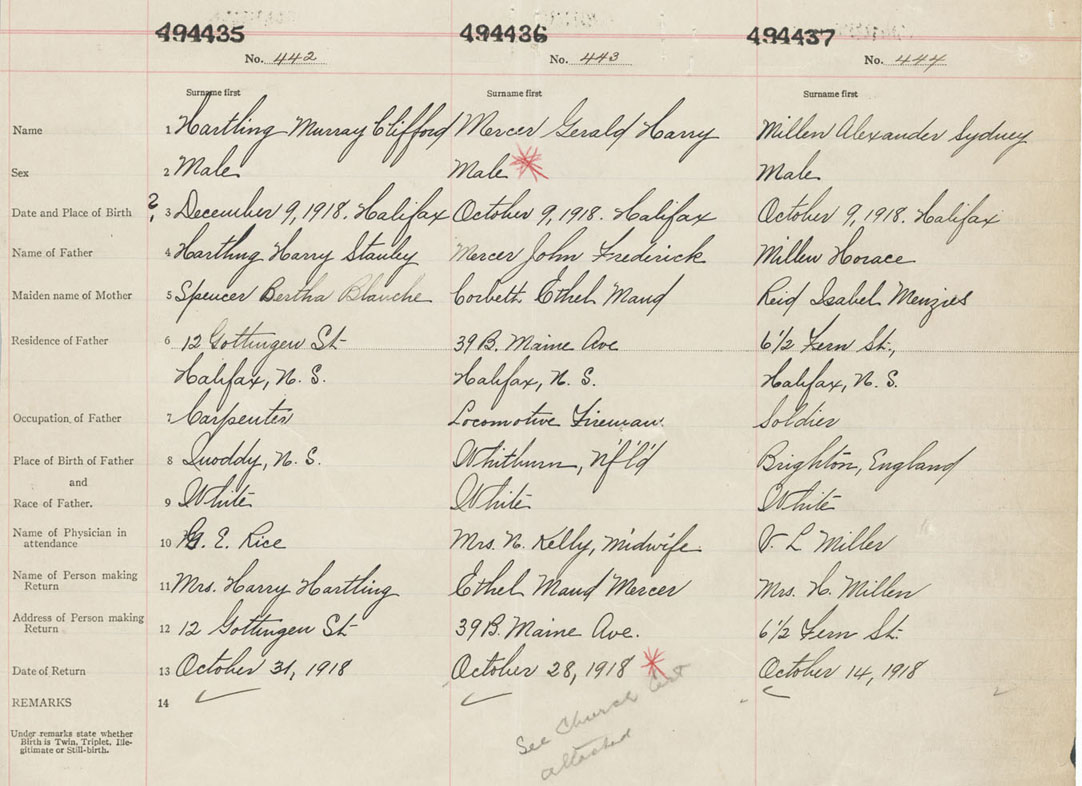 494435 494436 494437
No. 442 No. 443 No. 444
Surname first Surname first Surname first
Name 1 Hartling Murray Clifford Mercer Gerald Harry Millen Alexander Sydney
Sex 2 Male Male Male
Date and Place of Birth ? 3 December 9, 1918. Halifax October 9, 1918. Halifax October 9, 1918. Halifax
Name of Father 4 Hartling Harry Stanley Mercer John Frederick Millen Horace
Maiden name of Mother 5 Spencer Bertha Blanche Corbett Ethel Maud Reid Isabel Menzies
Residence of Father 6 12 Gottingen St 39 B. Maine Ave 6 1/2 Fern St.,
Halifax, N. S. Halifax, N. S. Halifax, N. S.
Occupation of Father 7 Carpenter Locomotive Fireman. Soldier
Place of Birth of Father 8 Quoddy, N. S. Whitburn, Nf'l'd Brighton, England
and
Race of Father. 9 White White White
Name of Physician in
attendance 10 G. E. Rice Mrs. N. Kelly, Midwife V. L Miller
Name of Person making
Return 11 Mrs. Harry Hartling Ethel Maud Mercer Mrs. H. Millen
Address of Person making
Return 12 12 Gottingen St 39 B. Maine Ave. 6 1/2 Fern St.
Date of Return 13 October 31, 1918 October 28, 1918 October 14, 1918
REMARKS 14
See Church Cert
attached
Under remarks state whether
Birth is Twin, Triplet, Ille-
gitimate or Still-birth.